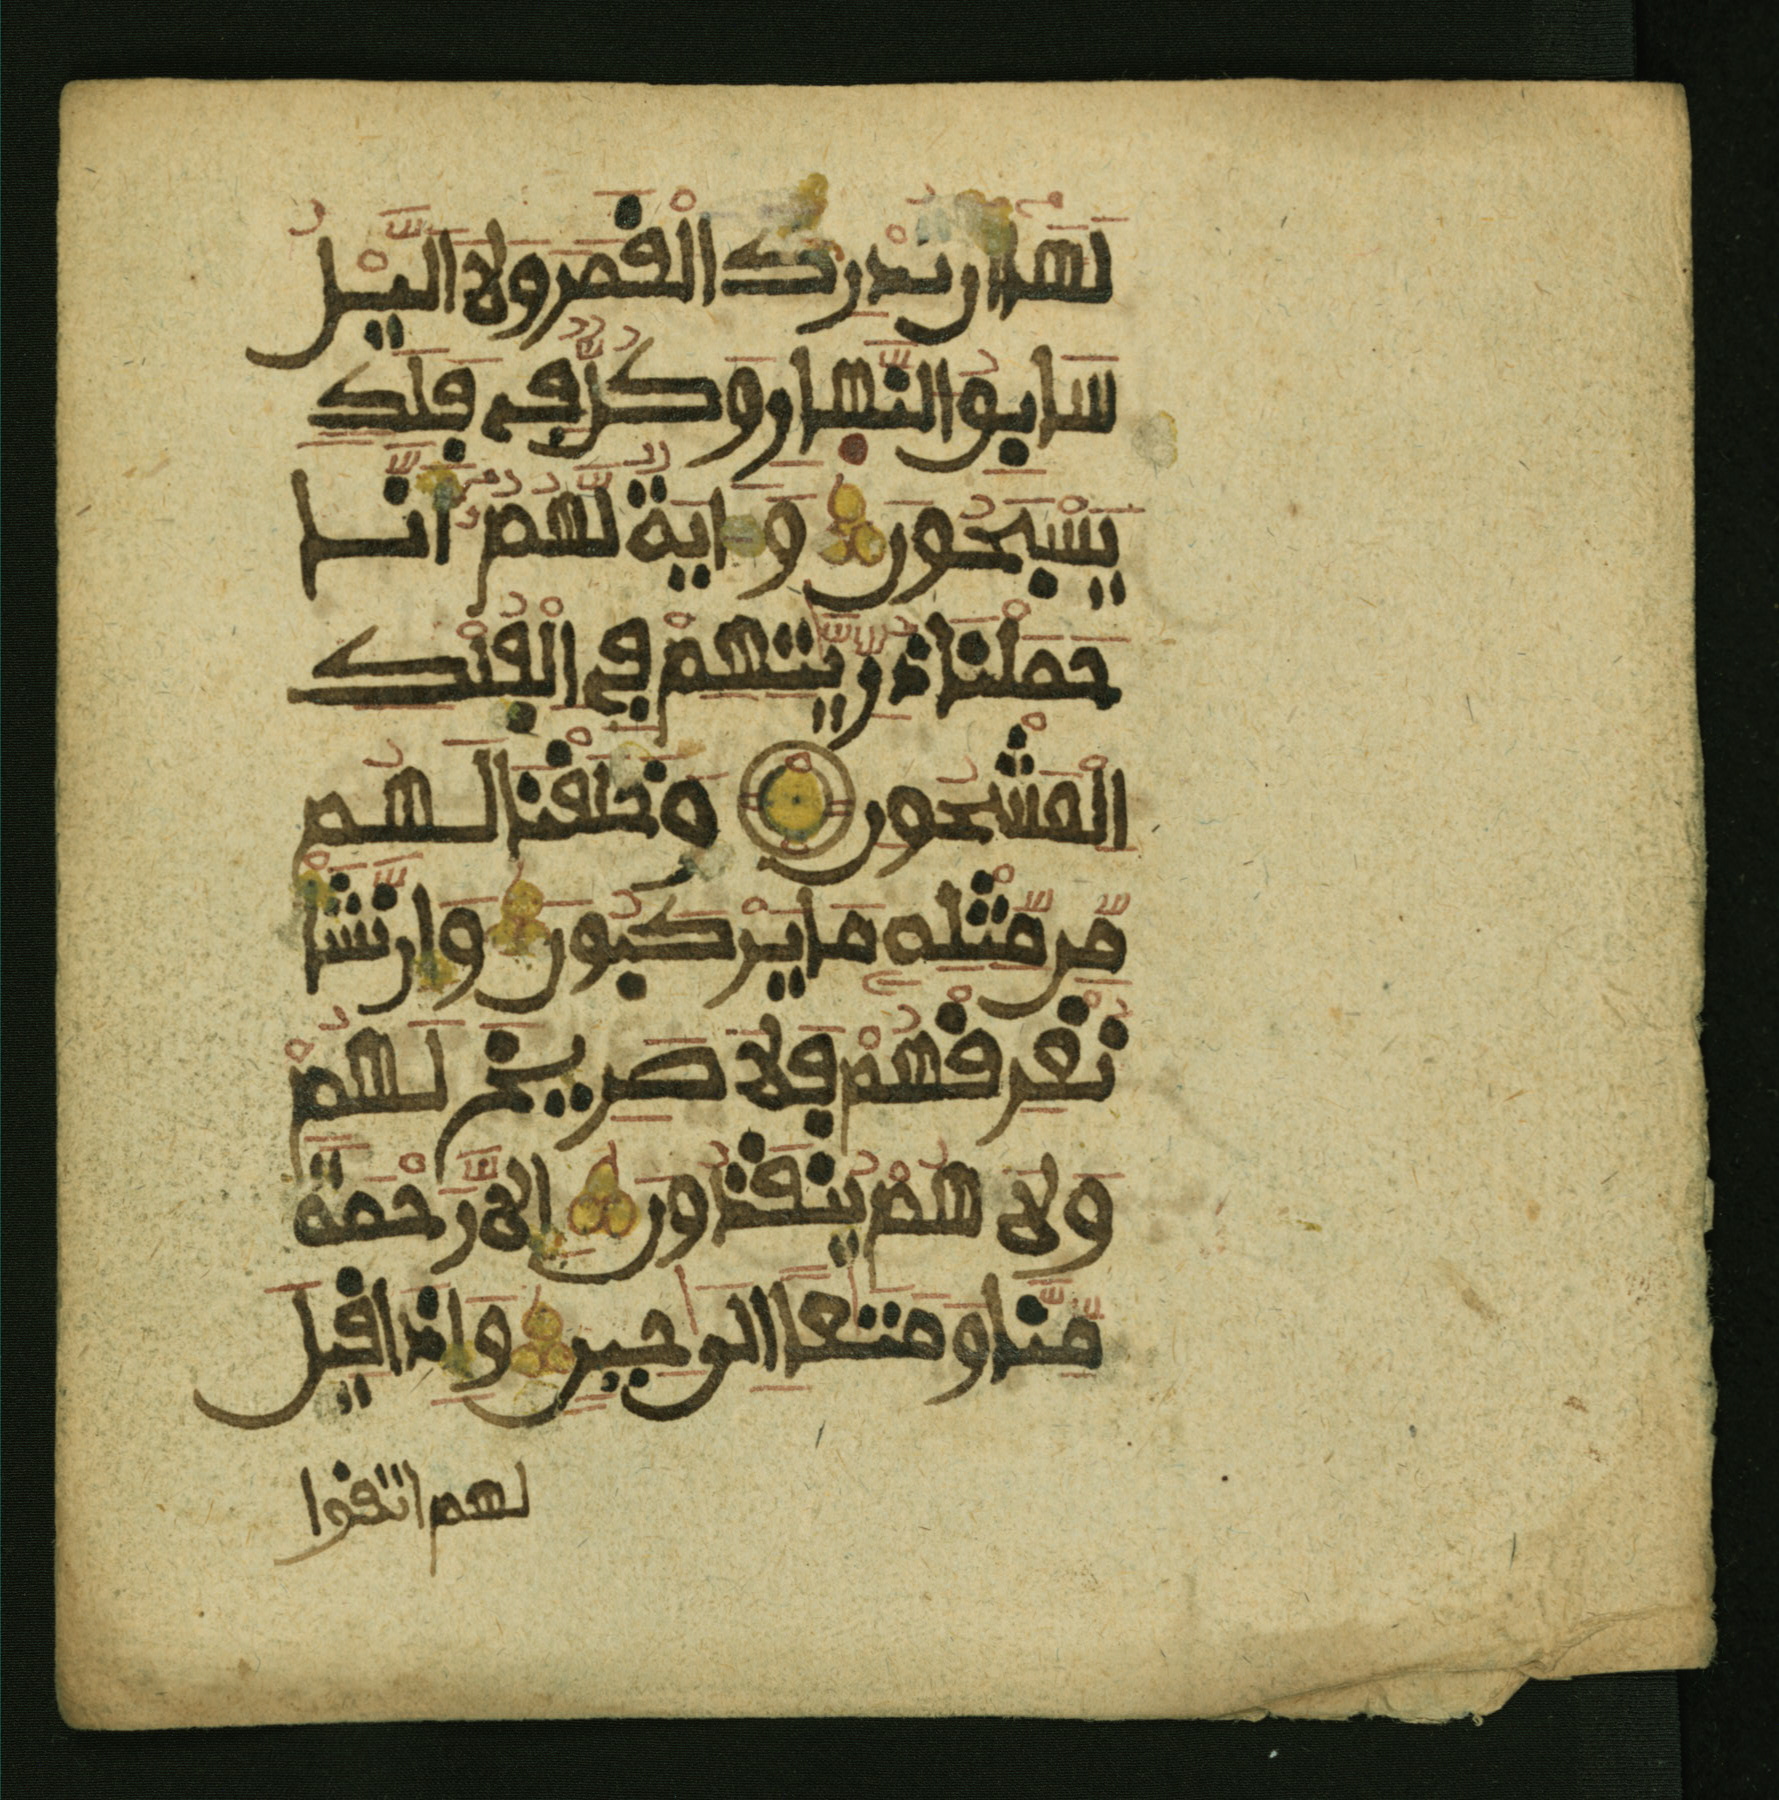 لَهَا أَن تُدْرِكَ اَلْقَمَرَ وَلَا اَلَّيْلُ
سَابِقُ اُلنَّهَارِ وَكُلٌّ فِي فَلَكٖ
يَسْبَحُونَ وَءَايَةٌ لَّهُمُۥٓ أَنَّا
حَمَلْنَا ذُرِّيَّٰتِهِمْ فِي اِلْفُلْكِ
اِلْمَشْحُونِ وَخَلَقْنَا لَهُم
مِّن مِّثْلِهِۦ مَا يَرْكَبُونَ وَإِن نَّشَأْ
نُغْرِقْهُمْ فَلَا صَرِيخَ لَهُمْ
وَلَا هُمْ يُنقَذُونَ إِلَّا رَحْمَةً
مِّنَّا وَمَتَٰعًا إِلَىٰ حِينٖ وَإِذَا قِيلَ
لهم اتقوا